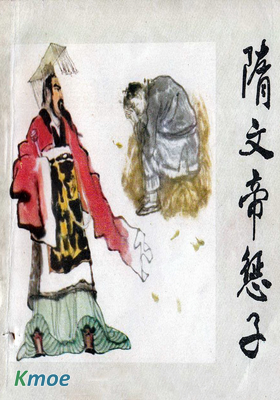 隋文帝惩子
Kmoe